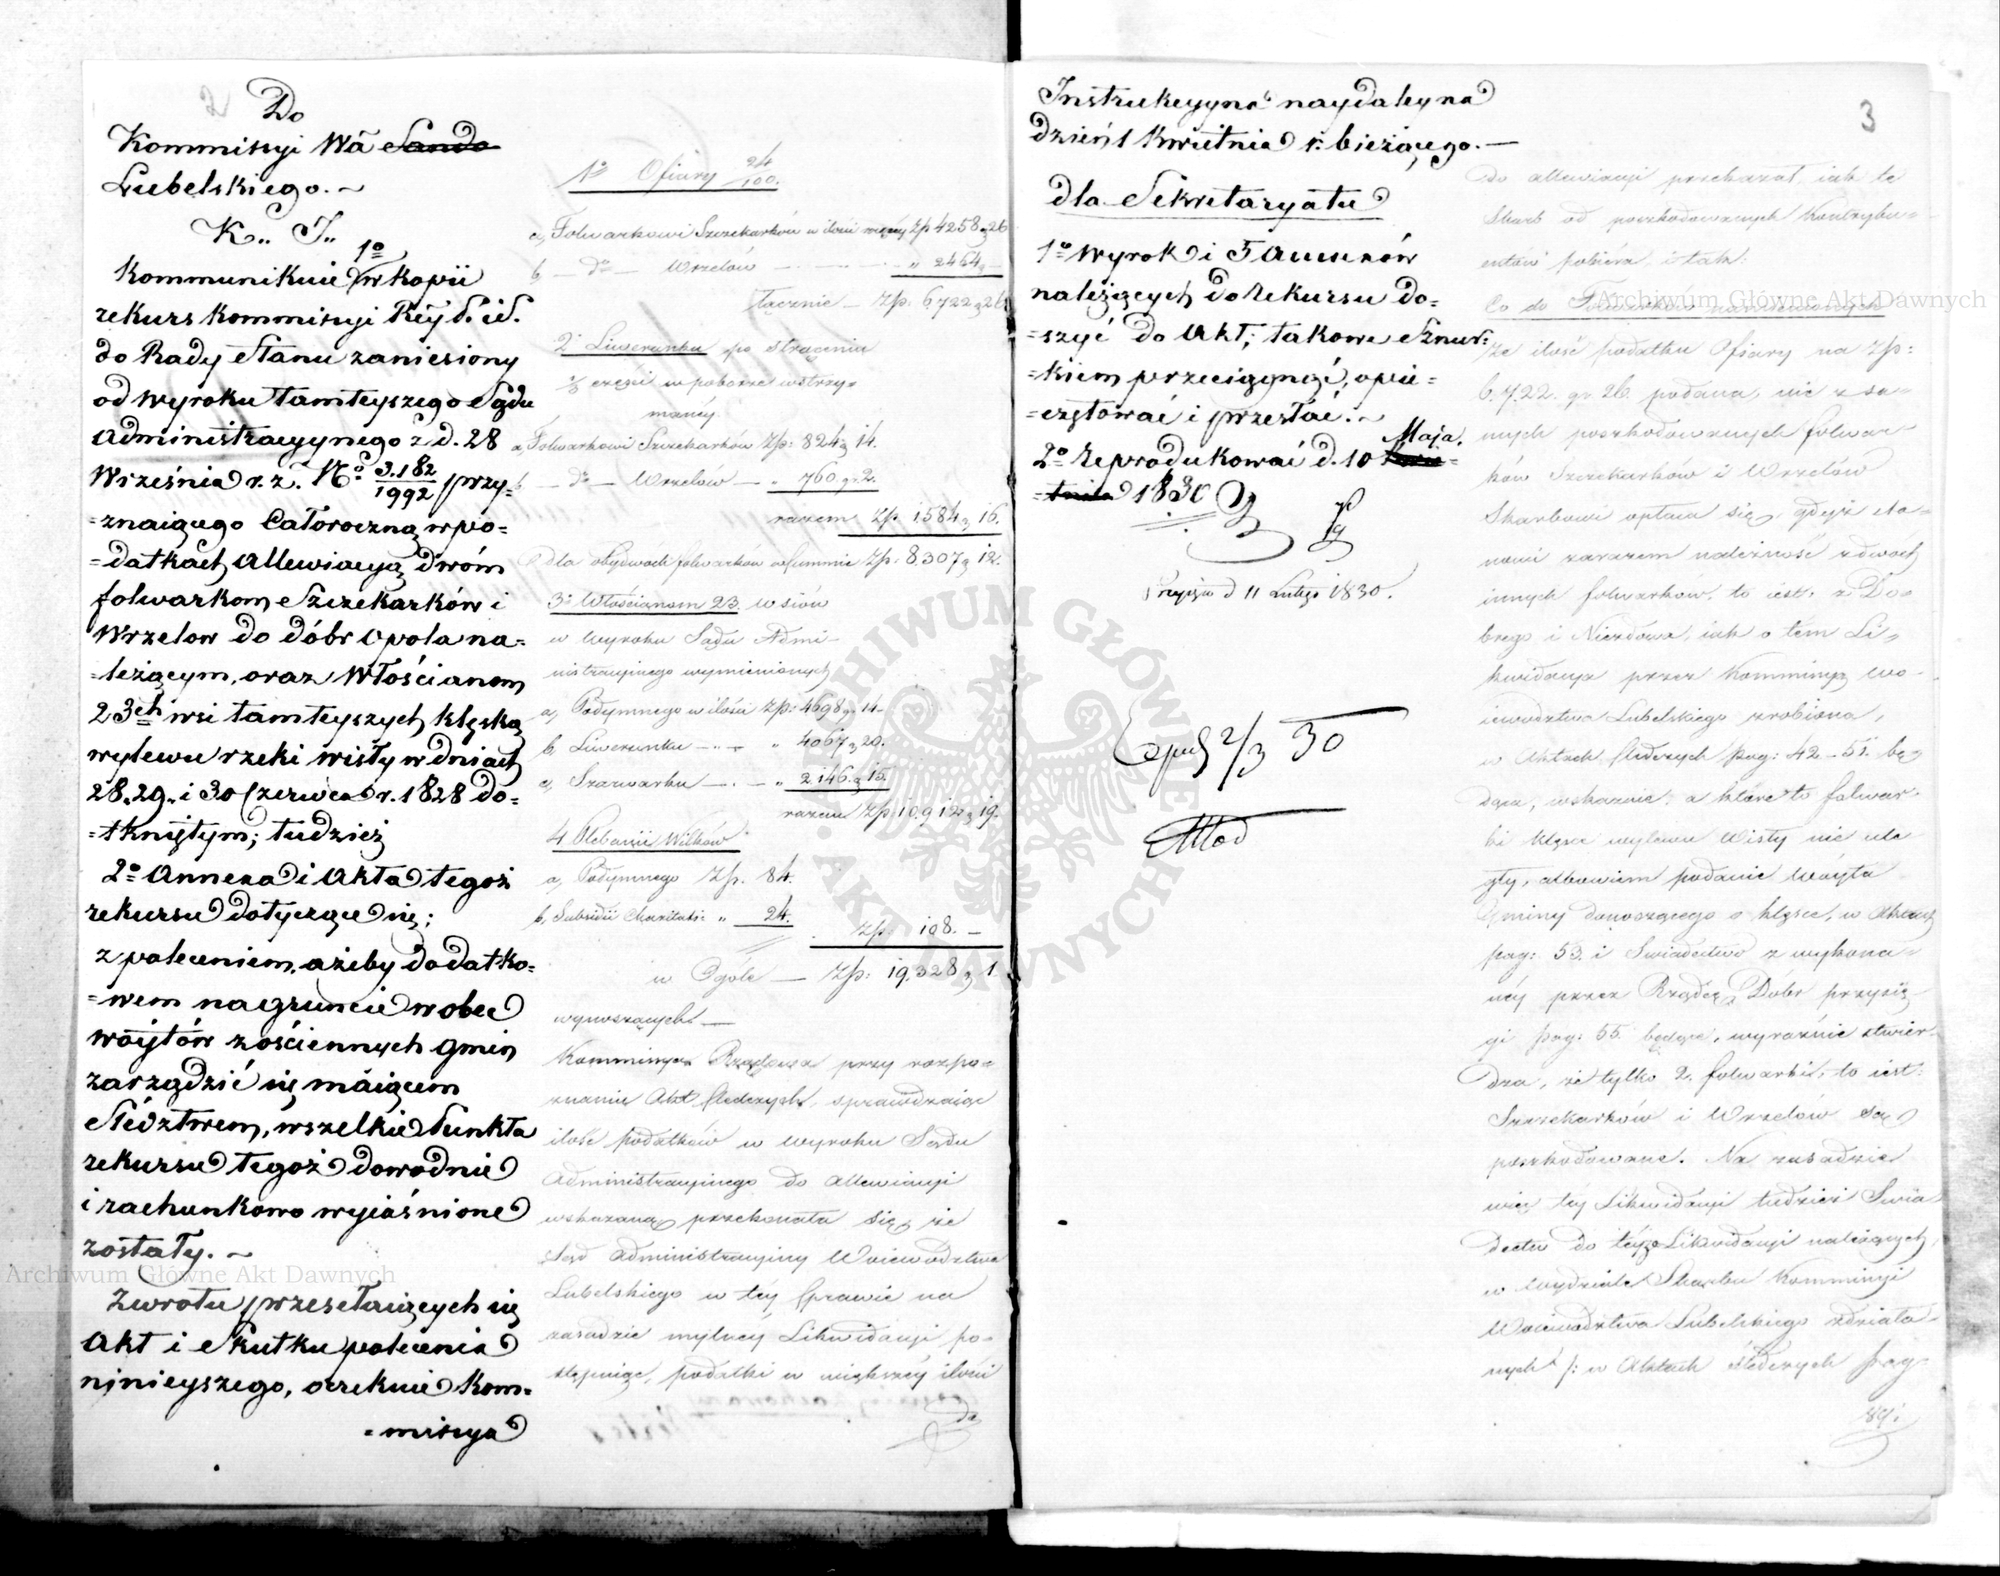 2
Do
Kommissyi Wa Sando
Lubelskiego. ~
K.. J..
1o
Kommunikuie w kopii
rekurs Kommissyi Rey P. i S.
do Rady Stanu zaniesiony
od wyroku tamteyszego Sądu
Administracyynego z d. 28
Września r. z. No 3.182/1992 przy-
=znaiącego Całoroczną w po-
=datkach Allewiacyą dwóm
folwarkom Szczekarków i
Wrzelow do dóbr Opola na-
=leżącym, oraz Włościanom
23ch wsi tamteyszych klęską
wylewu rzeki Wisły w dniach
28. 29. i 30 Czerwca r. 1828 do-
=tkniętym; tudzież
2o Annexa i Akta tegoż
rekursu dotyczące się;
z poleceniem, ażeby dodatko-
=wem na gruncie w obec
wóytów z ościennych gmin
zarządzić się maiącem
Śledztwem, wszelkie Punkta
rekursu tegoż dowodnie
i rachunkowo wyiaśnione
zostały. ~
Zwrotu przesełaiących się
Akt i skutku polecenia
ninieyszego, oczekuie Kom-
=missya
1o Ofiary 24/100.
a, Folwarkowi Szczekarków w ilości Zp 4258 g 26
b — do — Wrzelów — " 2464 g —
łącznie — Zp: 6722 g 26
2o Liwerunku po strąceniu
1/3 części w poborze wstrzy-
maney.
a Folwarkowi Szczekarków Zp: 824 g 14.
b — do — Wrzelów — " 760 gr 2.
razem Zp 1584 g 16.
dla obydwóch folwarków w summie Zp: 8,307 g 12.
3o Włościanom 23. wsiów
w wyroku Sądu Admi-
nistracyinego wymienionych
a, Podymnego w ilości Zp: 4698 gr 14
b, Liwerunku — " 4067 g 20.
c, Szarwarku — " 2146. g 15.
razem Zp 10.912 g 19.
4 Plebanii Wilków
a, Podymnego Zp. 84.
b, Subsidii Charitativi " 24.
Zp 108. —
w Ogóle — Zp: 19.328 g 1.
wynoszących. —
Kommissya Rządowa przy rozpo-
znaniu Akt śledczych, sprawdzaiąc
ilość podatków w wyroku Sądu
Administracyinego do allewiacyi
wskazaną przekonała się, że
Sąd Administracyiny Woiewództwa
Lubelskiego w téy sprawie na
zasadzie mylnéy Likwidacyi po-
stępuiąc, podatki w większéy ilości
da
3
Instrukcyyna naydaley na
dzień 1 Kwietnia r. bieżącego. —
dla Sekretaryatu
1o Wyrok i Fascykułów
należących do rekursu do-
=szyć do Akt; takowe Sznur-
=kiem przeciągnąć, opie-
=czętować i przesłać. ~
2o Reprodukować d. 10 Maja.
1830
d 11 Lutego 1830.
2/3 30
do allewiacyi przekazał, iak te
Skarb od poszkodowanych Kontrybu-
entów pobiéra, i tak:
Co do Folwarków nawiedzonych
że ilość podatku Ofiary na Zp:
6,722. gr 26. podana, nie z sa-
mych poszkodowanych folwar-
ków Szczekarków i Wrzelów
Skarbowi opłaca się, gdyż sta-
nowi zarazem należność z dwóch
innych folwarków, to iest: z Do-
brego i Niezdowa, iak o tém Li-
kwidacya przez Kommissyą Wo-
iewództwa Lubelskiego zrobiona,
w Aktach śledczych pag: 42 - 51. bę-
dąca, wskazuie; a które to folwar-
ki klęsce wylewu Wisły nie ule-
gły, albowiem podanie Wóyta
Gminy donoszącego o klęsce, w Aktach
pag: 53. i Świadectwo z wykona-
néy przez Rządcę Dóbr przysię-
gi pag: 55. będące, wyraźnie stwier-
dza, że tylko 2. folwarki, to iest:
Szczekarków i Wrzelów są
poszkodowane. Na zasadzie
więc téy Likwidacyi tudzież Świa-
dectw do téyże Likwidacyi należących,
w Wydziale Skarbu Kommissyi
Woiewództwa Lubelskiego zdziała-
nych /: w Aktach śledczych pag:
Archiwum Główne Akt Dawnych
Archiwum Główne Akt Dawnych
ARCHIWUM GŁÓWNE AKT DAWNYCH